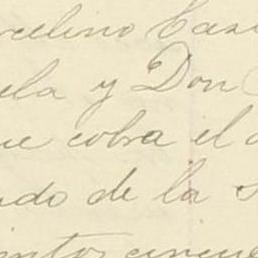 rcelino Cas
ela y Don
ue cobra el a
ado de la s
iento cincue